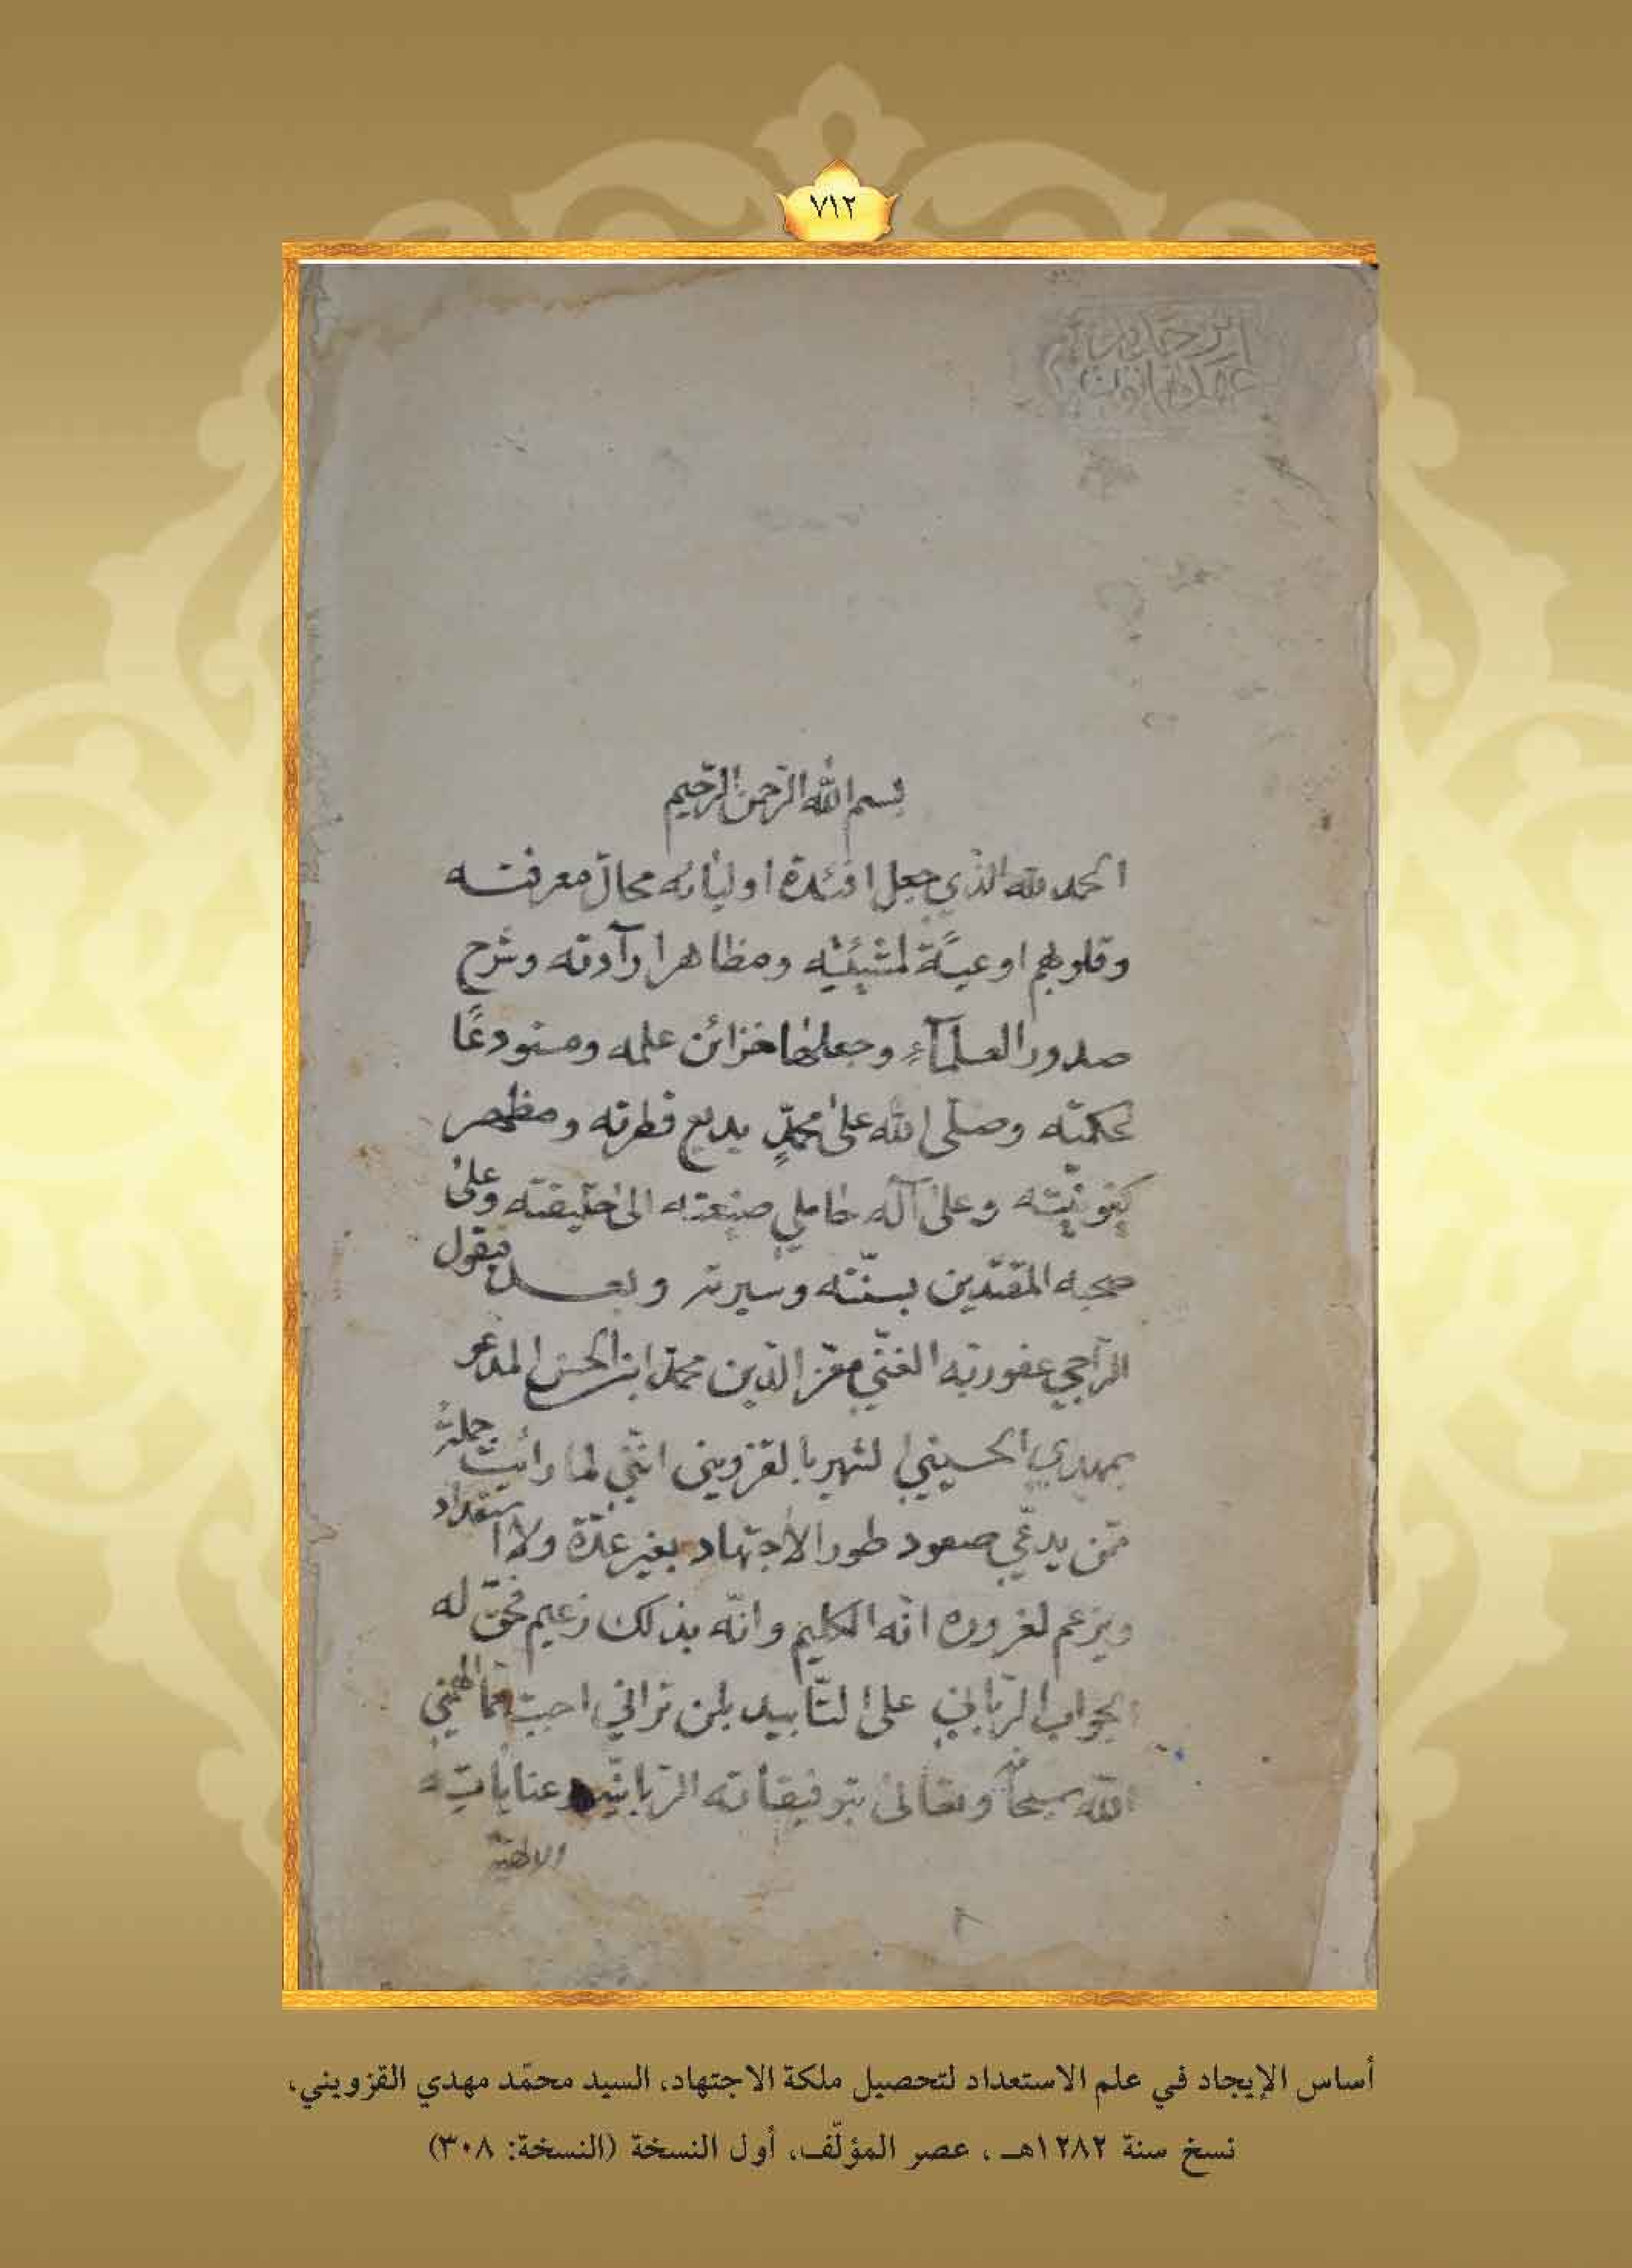 ٧١٢
بسم الله الرّحمن الرّحيم
الحمد لله الذي جعل افئدة اوليائه محالّ معرفته
وقلوبهم اوعيةً لمشيئته ومظاهر ارآدته وشرح
صدور العلمآء وجعلها خزائن علمه ومستودعًا
لحكمته وصلّى الله على محمّدٍ بديع فطرته ومظهر
كينونيّته وعلى آله حاملي صنيعته الى خليقته وعلى
صحبه المقتدين بسنّته وسيرته وبعد فيقول
الرّاجي عفو ربّه الغنّي معزّ الدّين محمّد ابن الحسن المدعو
بمهدي الحسيني الشهير بالقزويني انّني لما رائيت جملة
ممّن يدعّي صعود طور الاجتهاد بغير عدّة ولا استعداد
ويزعم لغروره انّه الكليم وانّه بذلك زعيم فحقّ له
الجواب الرّباني على التّأبيد بلن تراني احببت
الله سبحانه وتعالى بتوفيقاته الرّبانيّة وعناياته
الالهيّة
أساس الإيجاد في علم الاستعداد لتحصيل ملكة الاجتهاد، السيد محمّد مهدي القزويني،
نسخ سنة ١٢٨٢هـ ، عصر المؤلّف، أول النسخة (النسخة: ٣٠٨)